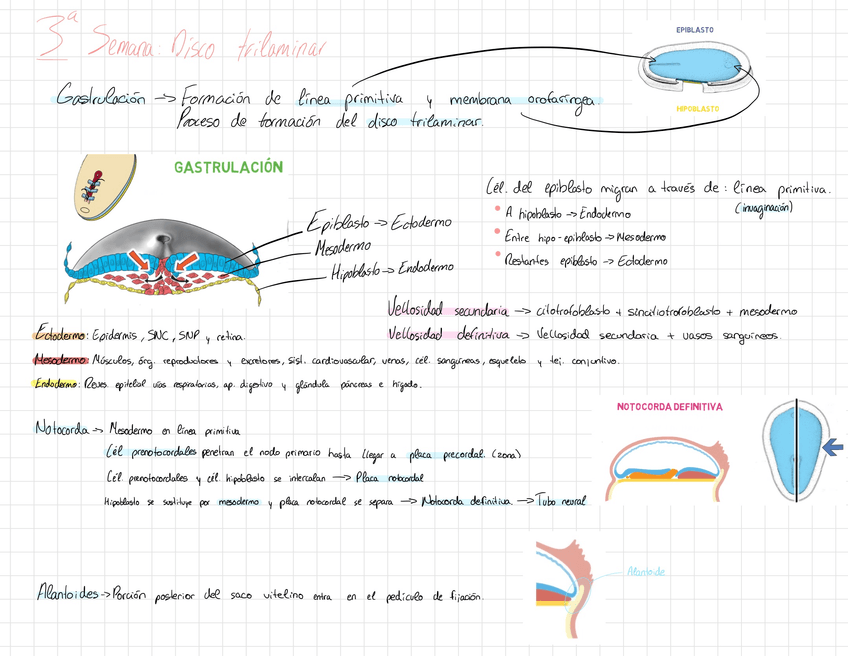 3ª Semana: Disco trilaminar
EPIBLASTO
HIPOBLASTO
Gastrulación -> Formación de línea primitiva y membrana orofaríngea.
Proceso de formación del disco trilaminar.
GASTRULACIÓN
Epiblasto -> Ectodermo
Mesodermo
Hipoblasto -> Endodermo
Cél. del epiblasto migran a través de: línea primitiva.
(invaginación)
• A hipoblasto -> Endodermo
• Entre hipo-epiblasto -> Mesodermo
• Restantes epiblasto -> Ectodermo
Vellosidad secundaria -> citotrofoblasto + sincitiotrofoblasto + mesodermo
Vellosidad definitiva -> Vellosidad secundaria + vasos sanguíneos.
Ectodermo: Epidermis, SNC, SNP y retina.
Mesodermo: Músculos, órg. reproductores y excretores, sist. cardiovascular, venas, cél. sanguíneas, esqueleto y tej. conjuntivo.
Endodermo: Reves. epitelial vías respiratorias, ap. digestivo y glándula páncreas e hígado.
Notocorda -> Mesodermo en línea primitiva
Cél prenotocordales penetran el nodo primario hasta llegar a placa precordal. (zona)
Cél. prenotocordales y cél. hipoblasto se intercalan -> Placa notocordal
Hipoblasto se sustituye por mesodermo y placa notocordal se separa -> Notocorda definitiva -> Tubo neural
NOTOCORDA DEFINITIVA
Alantoides -> Porción posterior del saco vitelino entra en el pedículo de fijación.
Alantoide